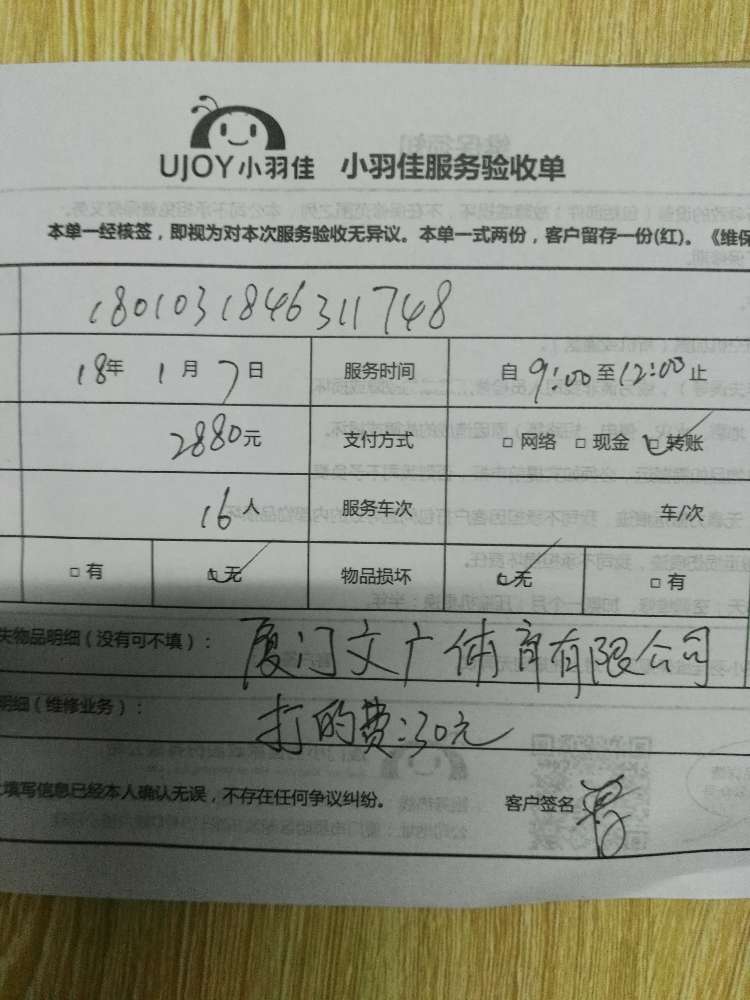 UJOY小羽佳 小羽佳服务验收单
本单一经核签，即视为对本次服务验收无异议。本单一式两份，客户留存一份(红)。《维保
180103184631748
18年 1月 7日 服务时间 自 9:00 至 12:00 止
2880元 支付方式 □ 网络 □ 现金 ☑ 转账
16人 服务车次 车/次
□ 有 ☑ 无 物品损坏 ☑ 无 □ 有
失物品明细（没有可不填）： 厦门文广体育有限公司
明细（维修业务）： 打的费:30元
填写信息已经本人确认无误，不存在任何争议纠纷。 客户签名：